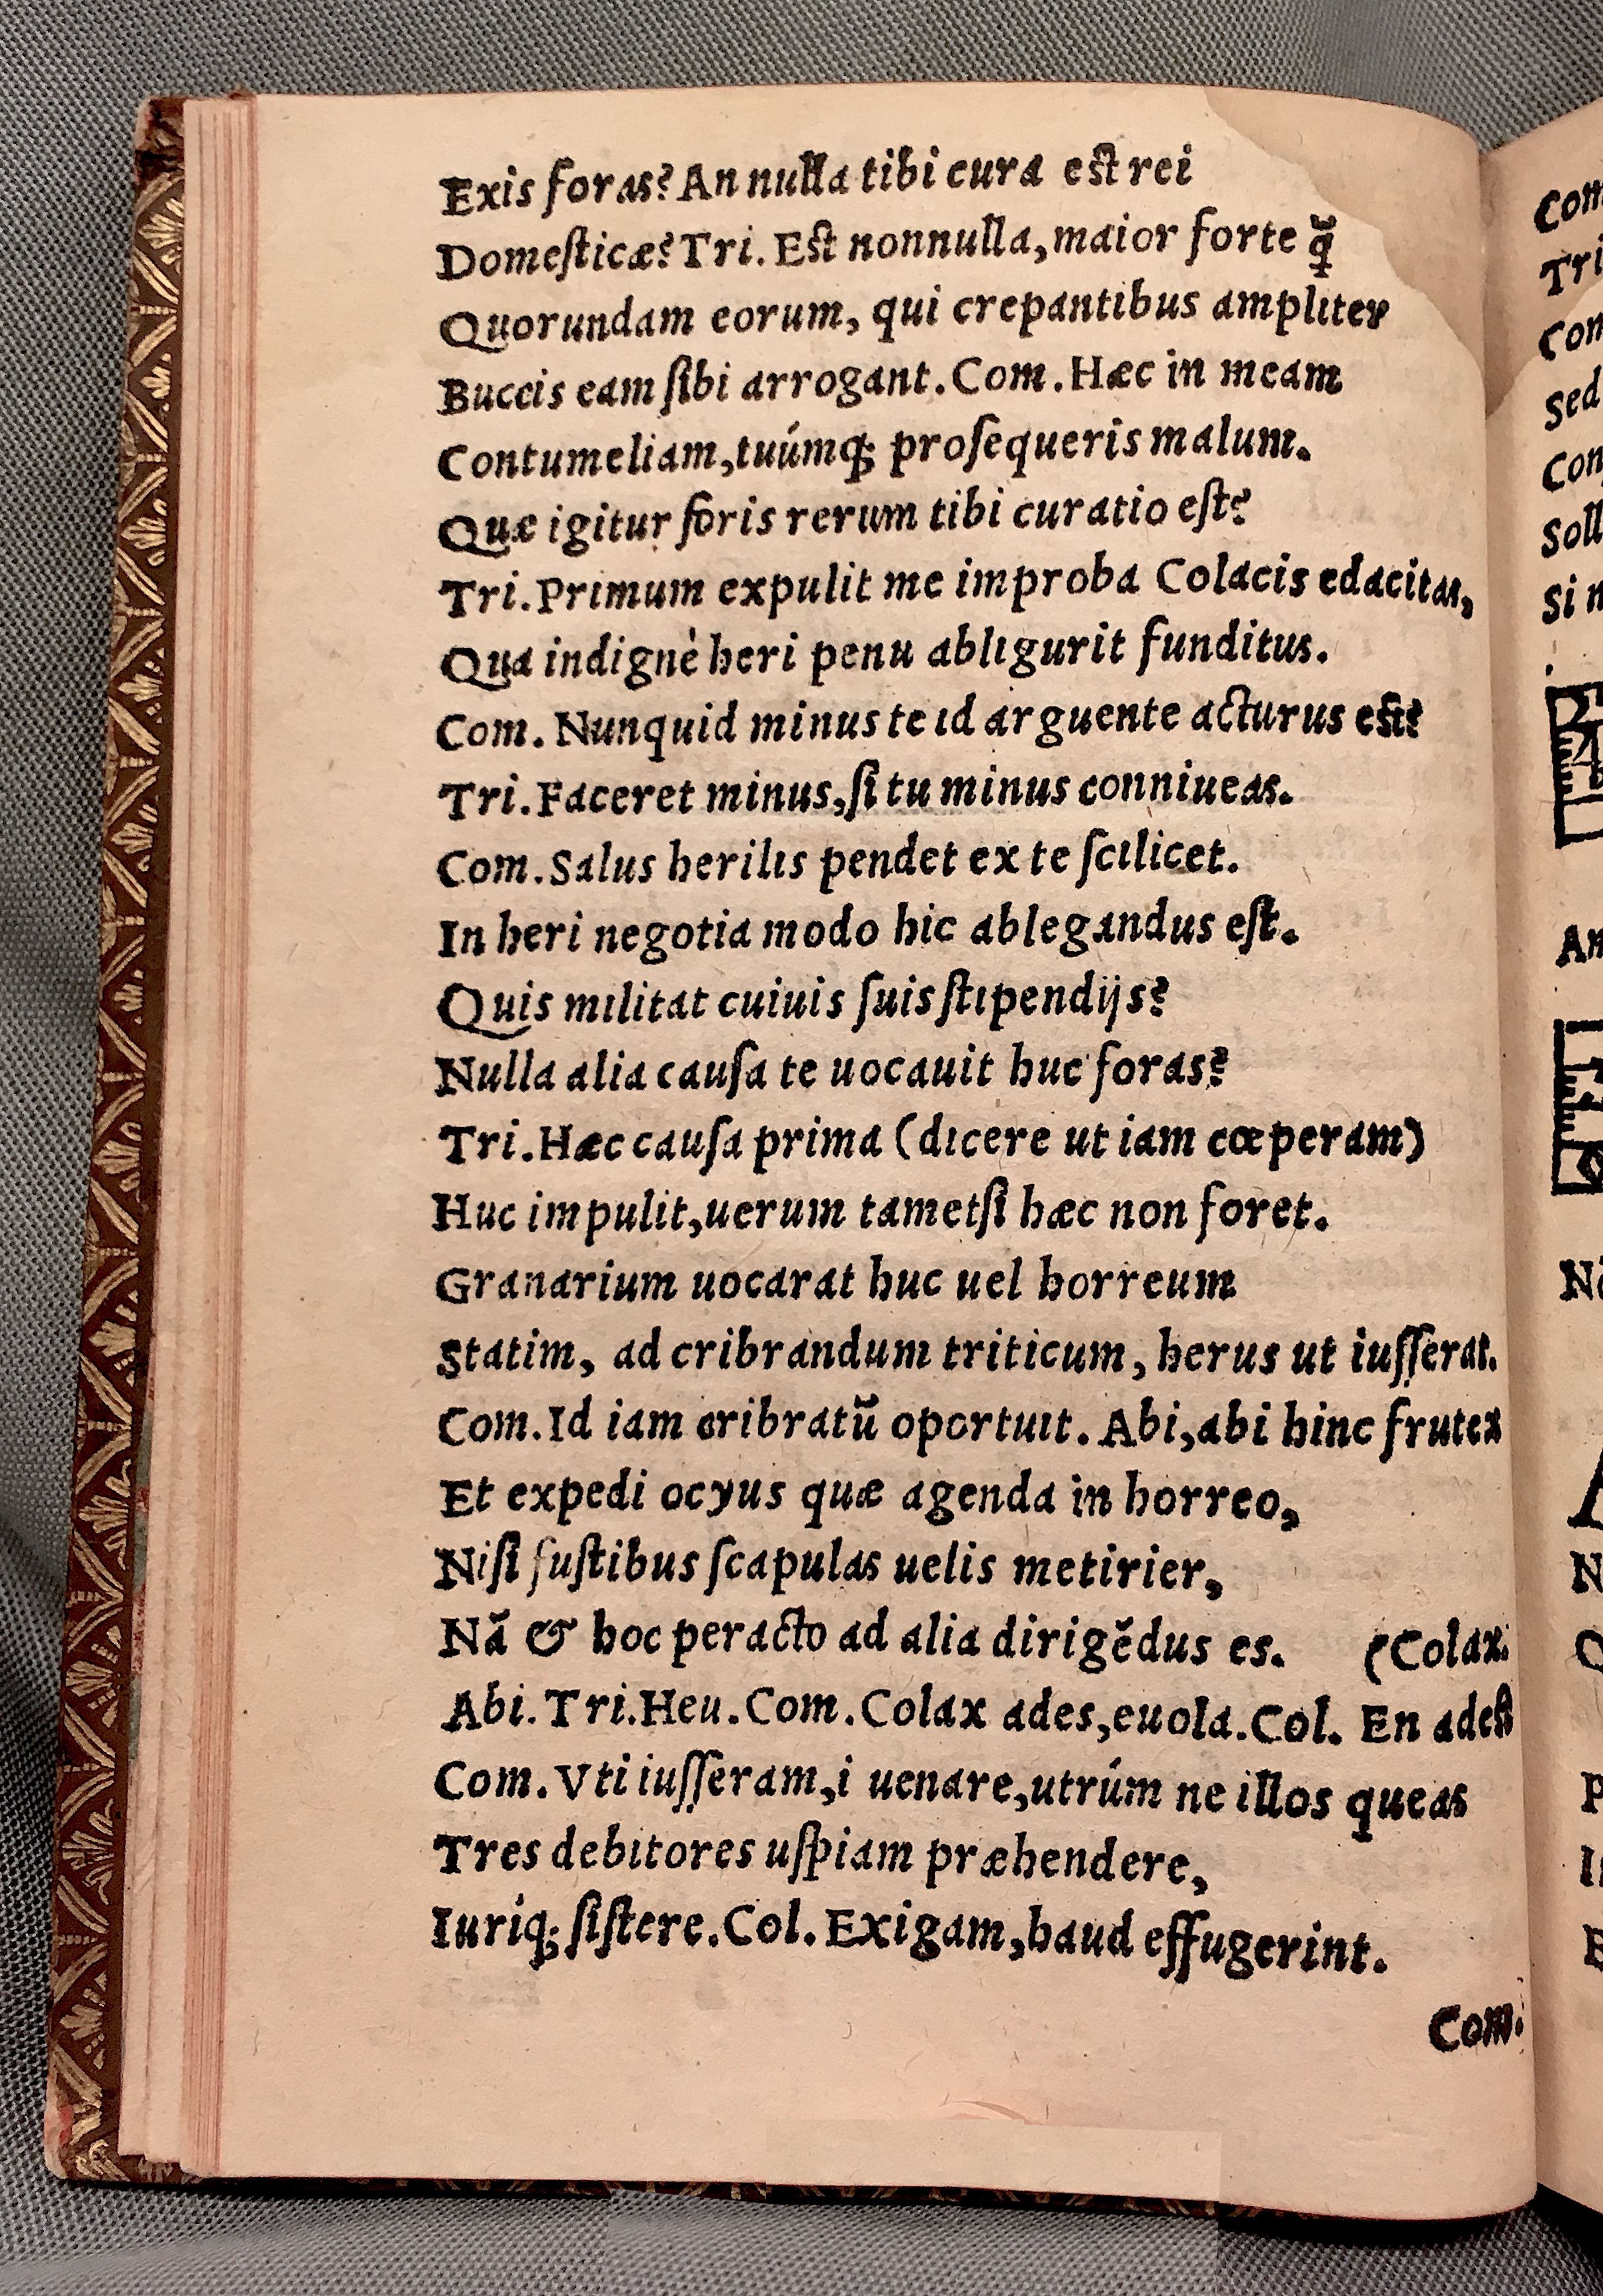 Exis foras? An nulla tibi cura est rei
Domesticæ? Tri. Est nonnulla, maior forte q̃
Quorundam eorum, qui crepantibus ampliter
Buccis eam ſibi arrogant. Com. Hæc in meam
Contumeliam, tuúmq; proſequeris malum.
Quæ igitur foris rerum tibi curatio eſt?
Tri. Primum expulit me improba Colacis edacitas,
Qua indignè heri penu abligurit funditus.
Com. Nunquid minus te id arguente acturus est?
Tri. Faceret minus, ſi tu minus conniueas.
Com. Salus herilis pendet ex te ſcilicet.
In heri negotia modo hic ablegandus eſt.
Quis militat cuiuis ſuis ſtipendijs?
Nulla alia cauſa te uocauit huc foras?
Tri. Hæc cauſa prima (dicere ut iam cœperam)
Huc impulit, uerum tametſi hæc non foret.
Granarium uocarat huc uel horreum
Statim, ad cribrandum triticum, herus ut iuſſerat.
Com. Id iam cribratũ oportuit. Abi, abi hinc frutex
Et expedi ocyus quæ agenda in horreo,
Niſi fuſtibus ſcapulas uelis metirier,
Nã & hoc peracto ad alia dirigẽdus es. (Colax.
Abi. Tri. Heu. Com. Colax ades, euola. Col. En adest
Com. Vti iuſſeram, i uenare, utrúm ne illos queas
Tres debitores uſpiam præhendere,
Iuriq; ſiſtere. Col. Exigam, haud effugerint.
Com.
Com
Tri
Com
Sed
Con
Soll
Si n
An
N
P